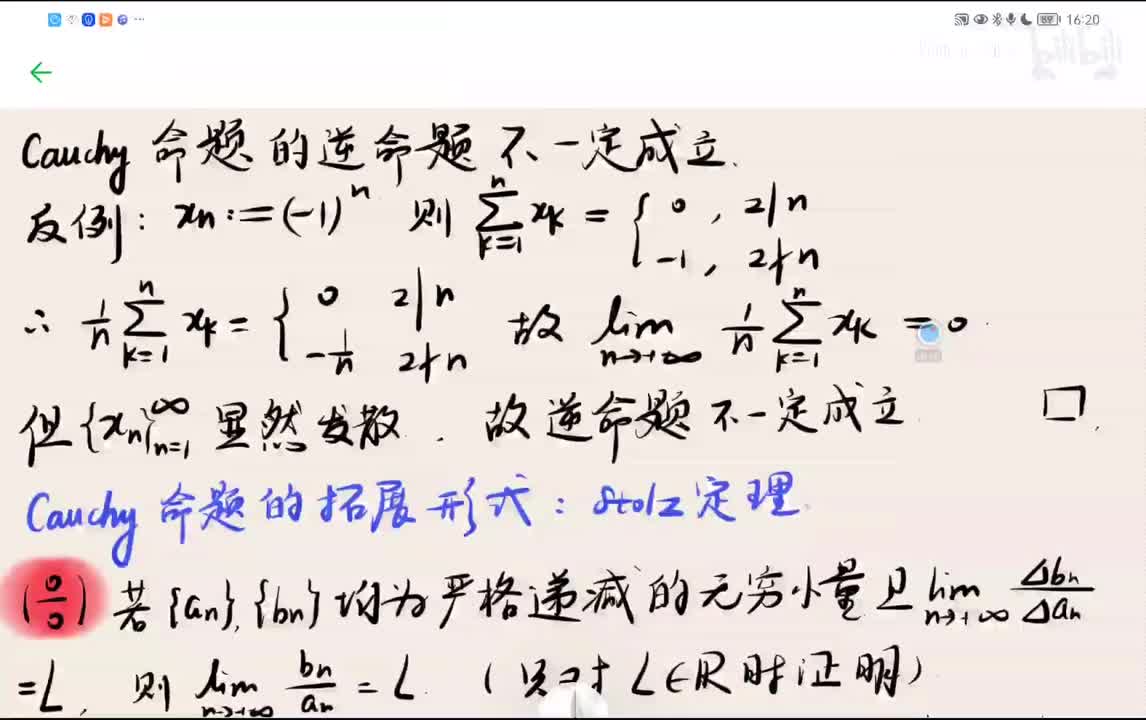 16:20
bilibili
Cauchy 命题的逆命题不一定成立.
反例: xₙ := (-1)ⁿ 则 ∑_{k=1}^{n} xₖ = { 0, 2|n
-1, 2∤n
∴ 1/n ∑_{k=1}^{n} xₖ = { 0 2|n
-1/n 2∤n 故 lim_{n→+∞} 1/n ∑_{k=1}^{n} xₖ = 0.
但 {xₙ}_{n=1}^{∞} 显然发散. 故逆命题不一定成立. □.
Cauchy 命题的拓展形式: Stolz 定理.
(0/0) 若{aₙ},{bₙ}均为严格递减的无穷小量且 lim_{n→+∞} Δbₙ/Δaₙ
=L, 则 lim_{n→+∞} bₙ/aₙ = L. (只对 L∈ℝ 时证明)